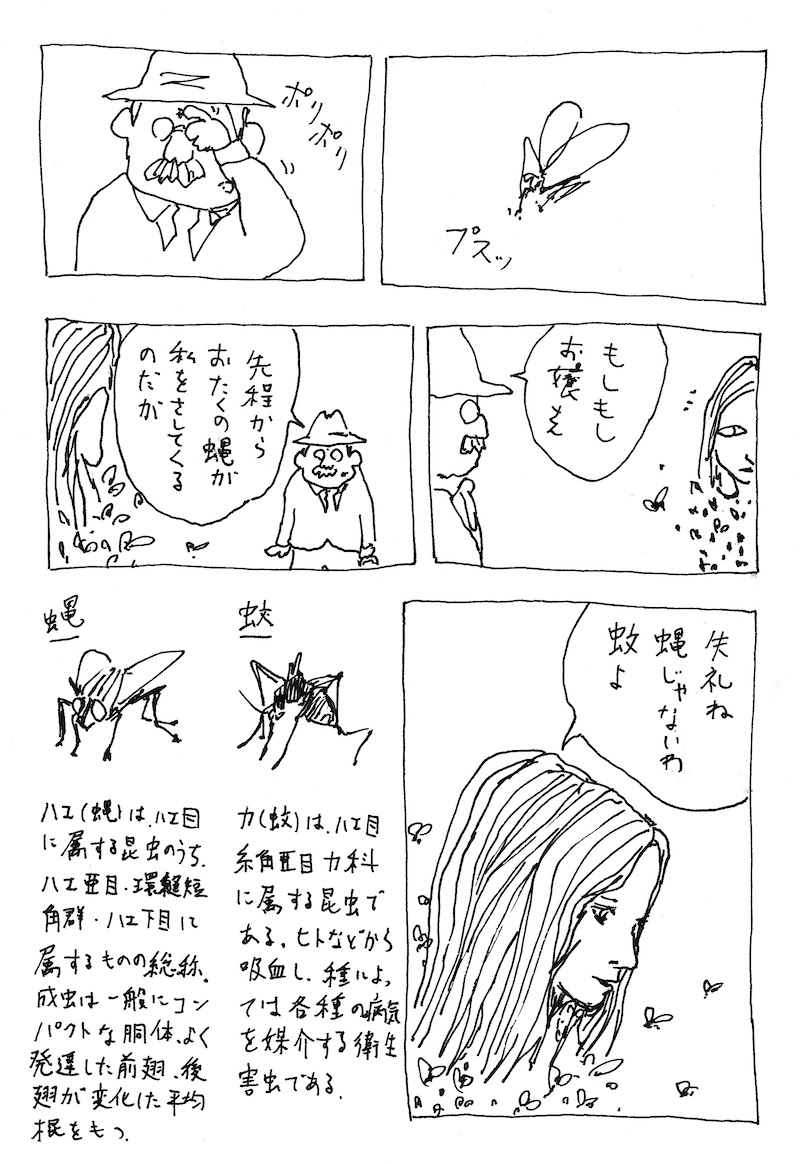 プスッ
ポリ
ポリ
もしもし
お嬢さん
先程から
おたくの蝿が
私をさしてくる
のだが
失礼ね
蝿じゃないわ
蚊よ
蚊
カ(蚊)は、ハエ目
糸角亜目カ科
に属する昆虫で
ある。ヒトなどから
吸血し、種によっ
ては各種の病気
を媒介する衛生
害虫である。
蝿
ハエ(蝿)は、ハエ目
に属する昆虫のうち、
ハエ亜目・環縫短
角群・ハエ下目に
属するものの総称。
成虫は一般にコン
パクトな胴体、よく
発達した前翅、後
翅が変化した平均
棍をもつ。